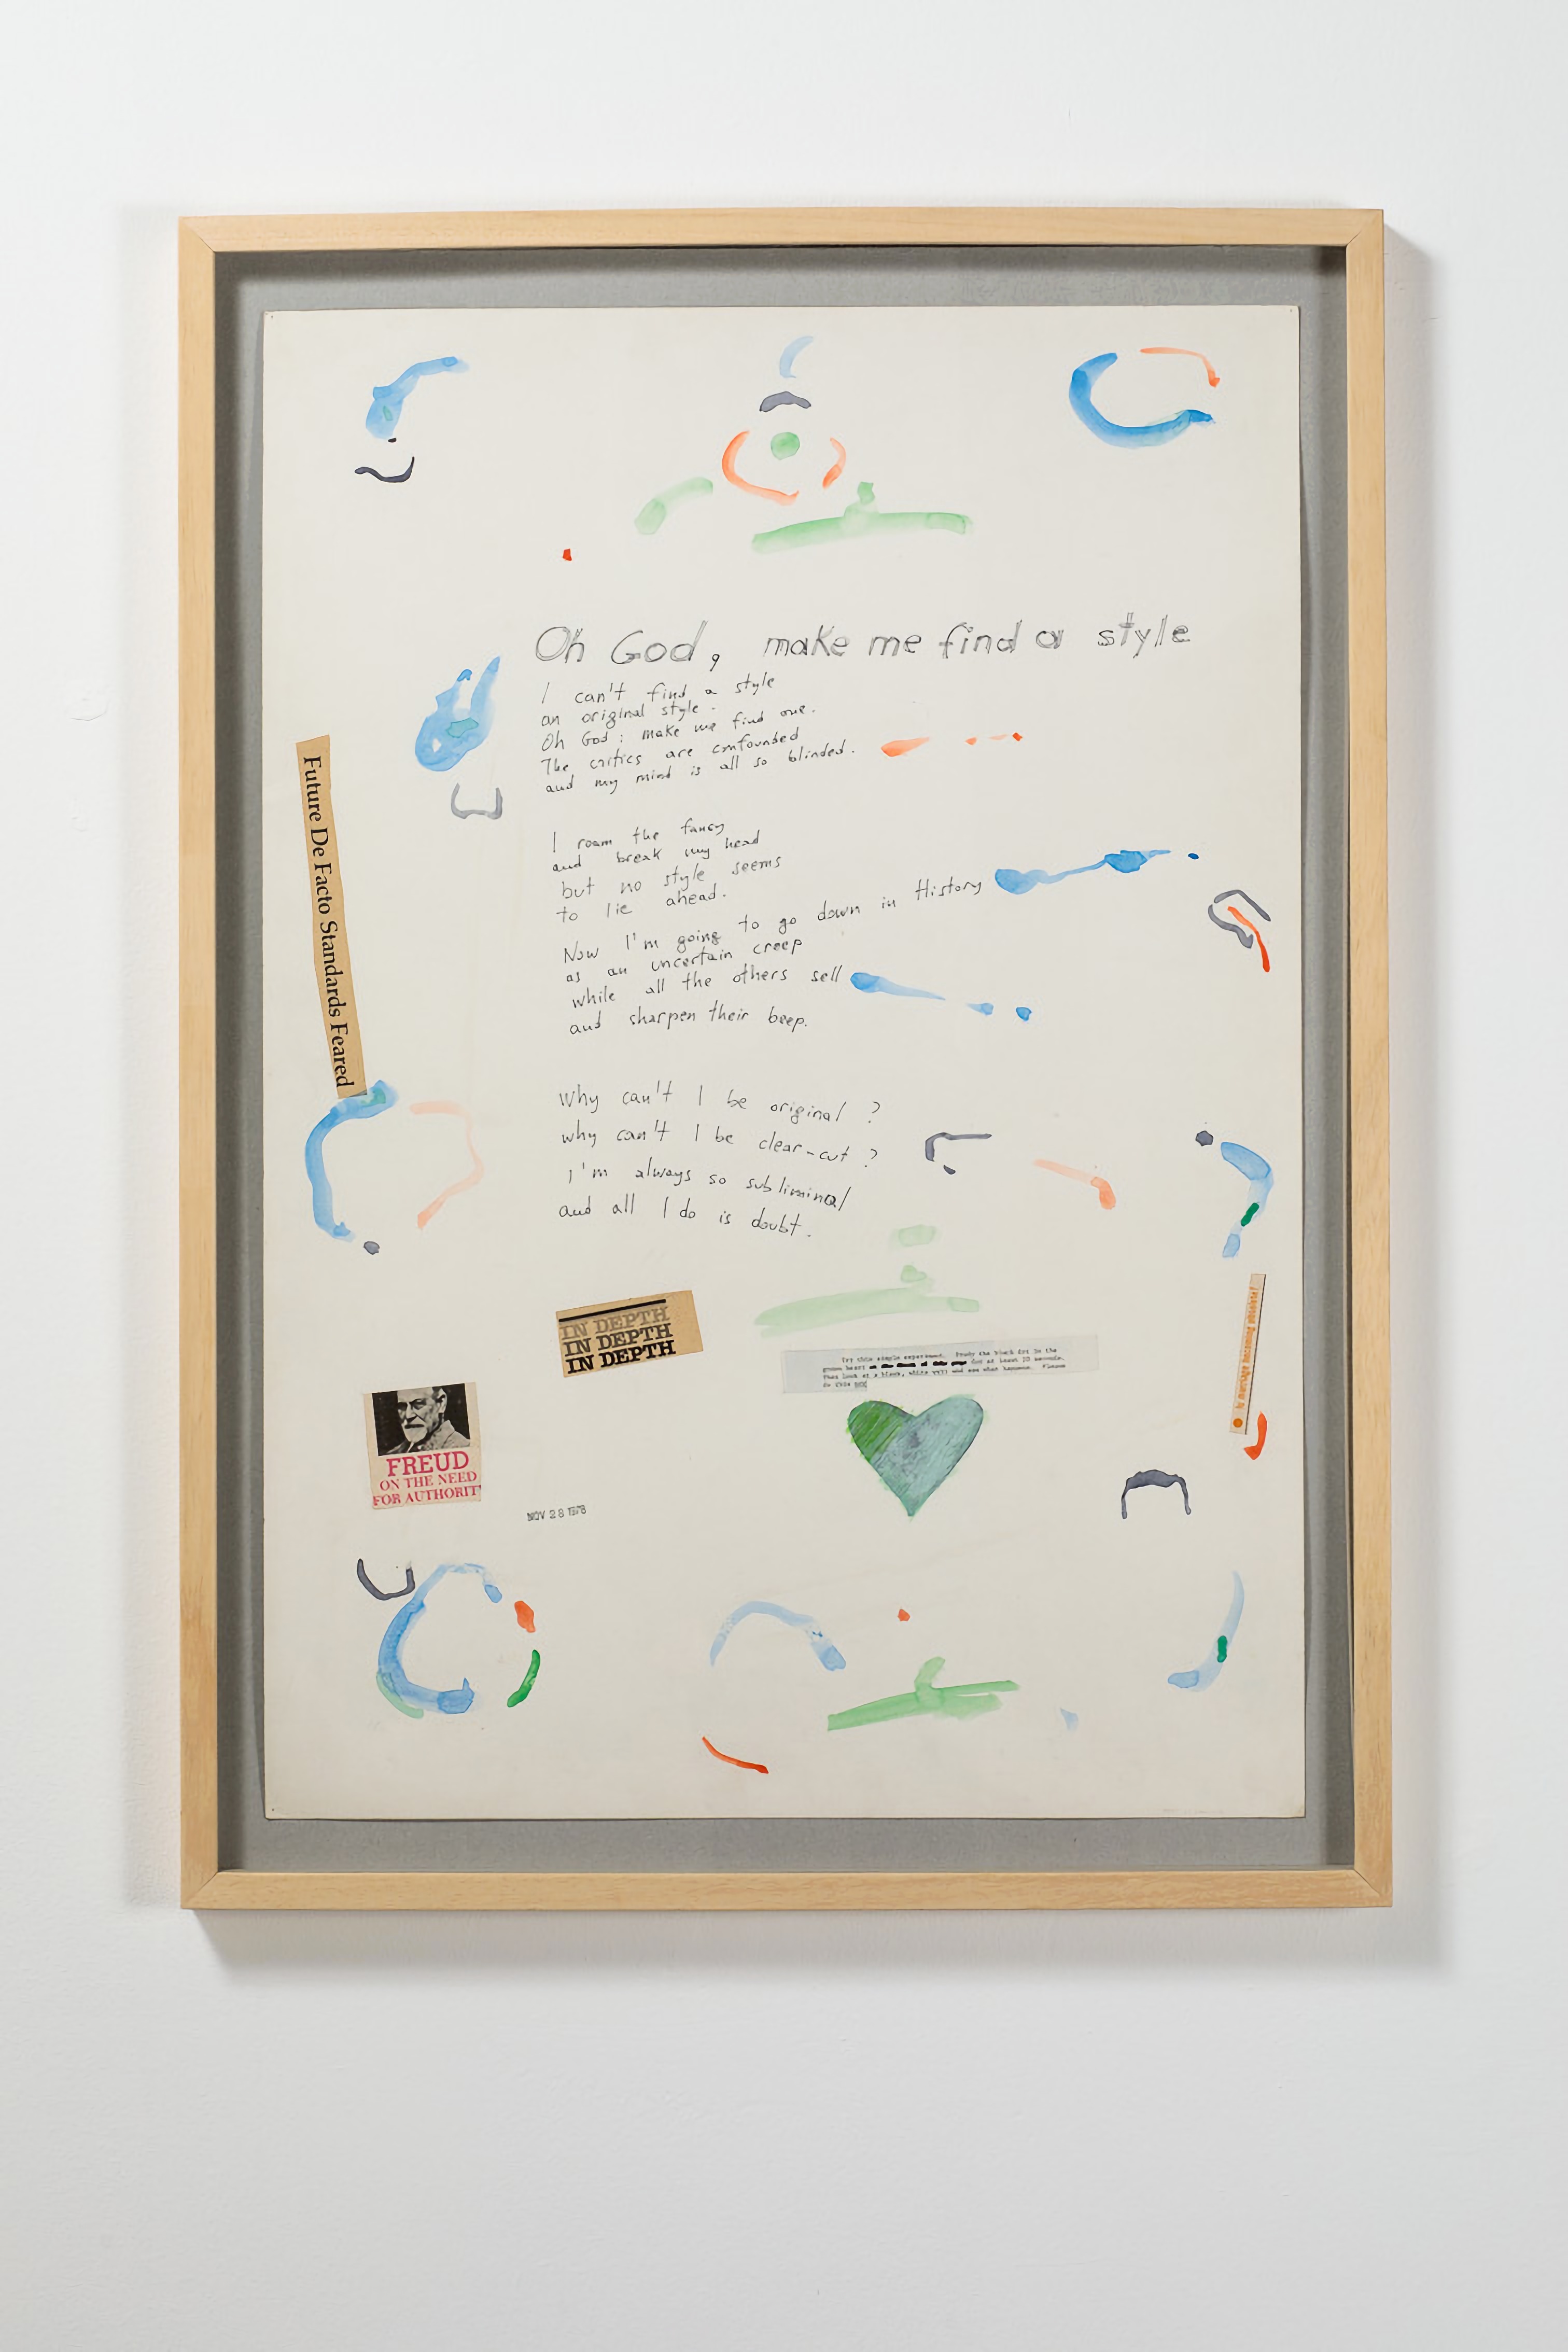 Oh God, make me find a style
I can't find a style
an original style.
Oh God: make me find one.
The critics are confounded
and my mind is all so blinded.
I roam the fancy
and break my head
but no style seems
to lie ahead.
Now I'm going to go down in History
as an uncertain creep
while all the others sell
and sharpen their beep.
Why can't I be original?
why can't I be clear-cut?
I'm always so subliminal
and all I do is doubt.
Future De Facto Standards Feared
IN DEPTH
IN DEPTH
IN DEPTH
Try this simple experiment. Study the black dot in the
green heart for at least 30 seconds.
Then look at a blank, white wall and see what happens. Please
do this
FREUD
ON THE NEED
FOR AUTHORIT
NOV 28 1978